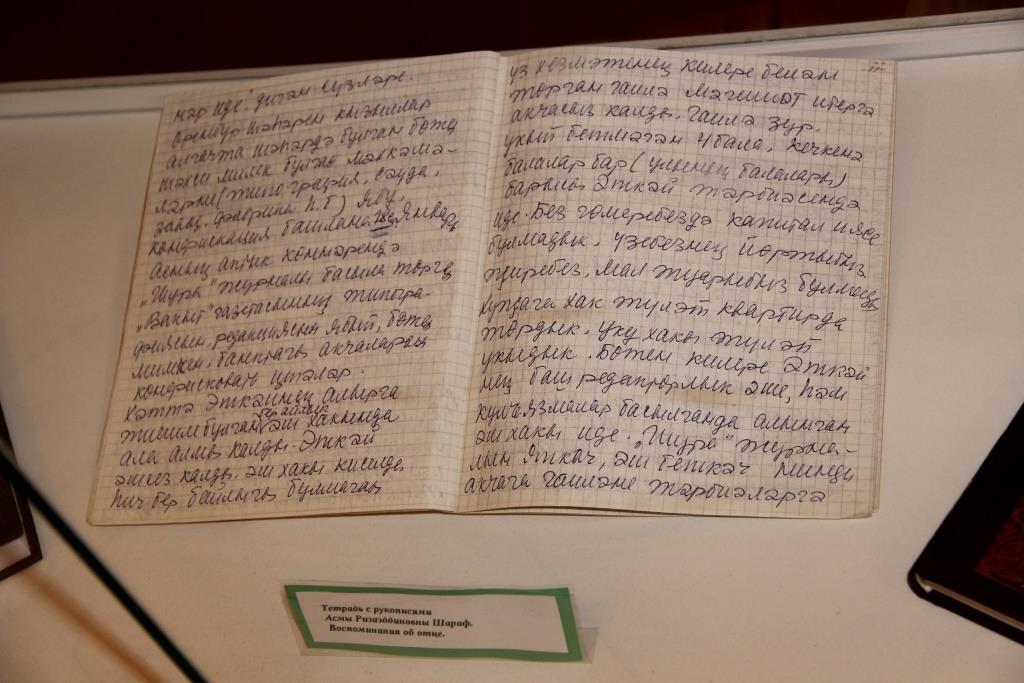 мәр иде" дигән сүзләре.
Оренбур шәһәрен кызыллар
алгачта шәһәрдә булган бөтен
шәхси милек булган мәхкамә-
ләрне (типография, сауда,
завод, фабрика һ.б)
конфискация башлана. 18 Январь
аеның
"Шура" журналы басыла торган
"Вакыт" газетасының типогра-
фиясын, редакциясын ябып, бөтен
милкен, банктагы акчаларын
конфисковать итәләр.
Хәттә Әткәйнең алырга
тиешле булган бер айлык эш хакында
ала алмый калды. Әткәй
эшсез калды, эш хакы киселде,
һич бер байлыгы булмаган
үз хезмәтенең килере белән
торган гаилә мәгыйшәт итәргә
акчасыз калды. Гаилә зур.
укып бетмәгән 4 бала, кечкенә
балалар бар (үлкәннең балалары)
барысы Әткәй тәрбиәсендә
иде. Без гомеребездә капитал иясе
булмадык, үзебезнең йортыбыз
җиребез, мал туарыбыз булмады
Кунага хак түләп квартирда
тордык. Уку хакы түләп
укыдык. Бөтен килере Әткәй
нең баш редакторлык эше, һәм
кулъязмалар басылганда алынган
эш хакы иде. "Шура" журна-
лын япкач, эш беткәч нинди
акчага гаиләне тәрбиәләргә
Тетрадь с рукописями
Асмы Ризаэддиновны Шараф.
Воспоминания об отце.